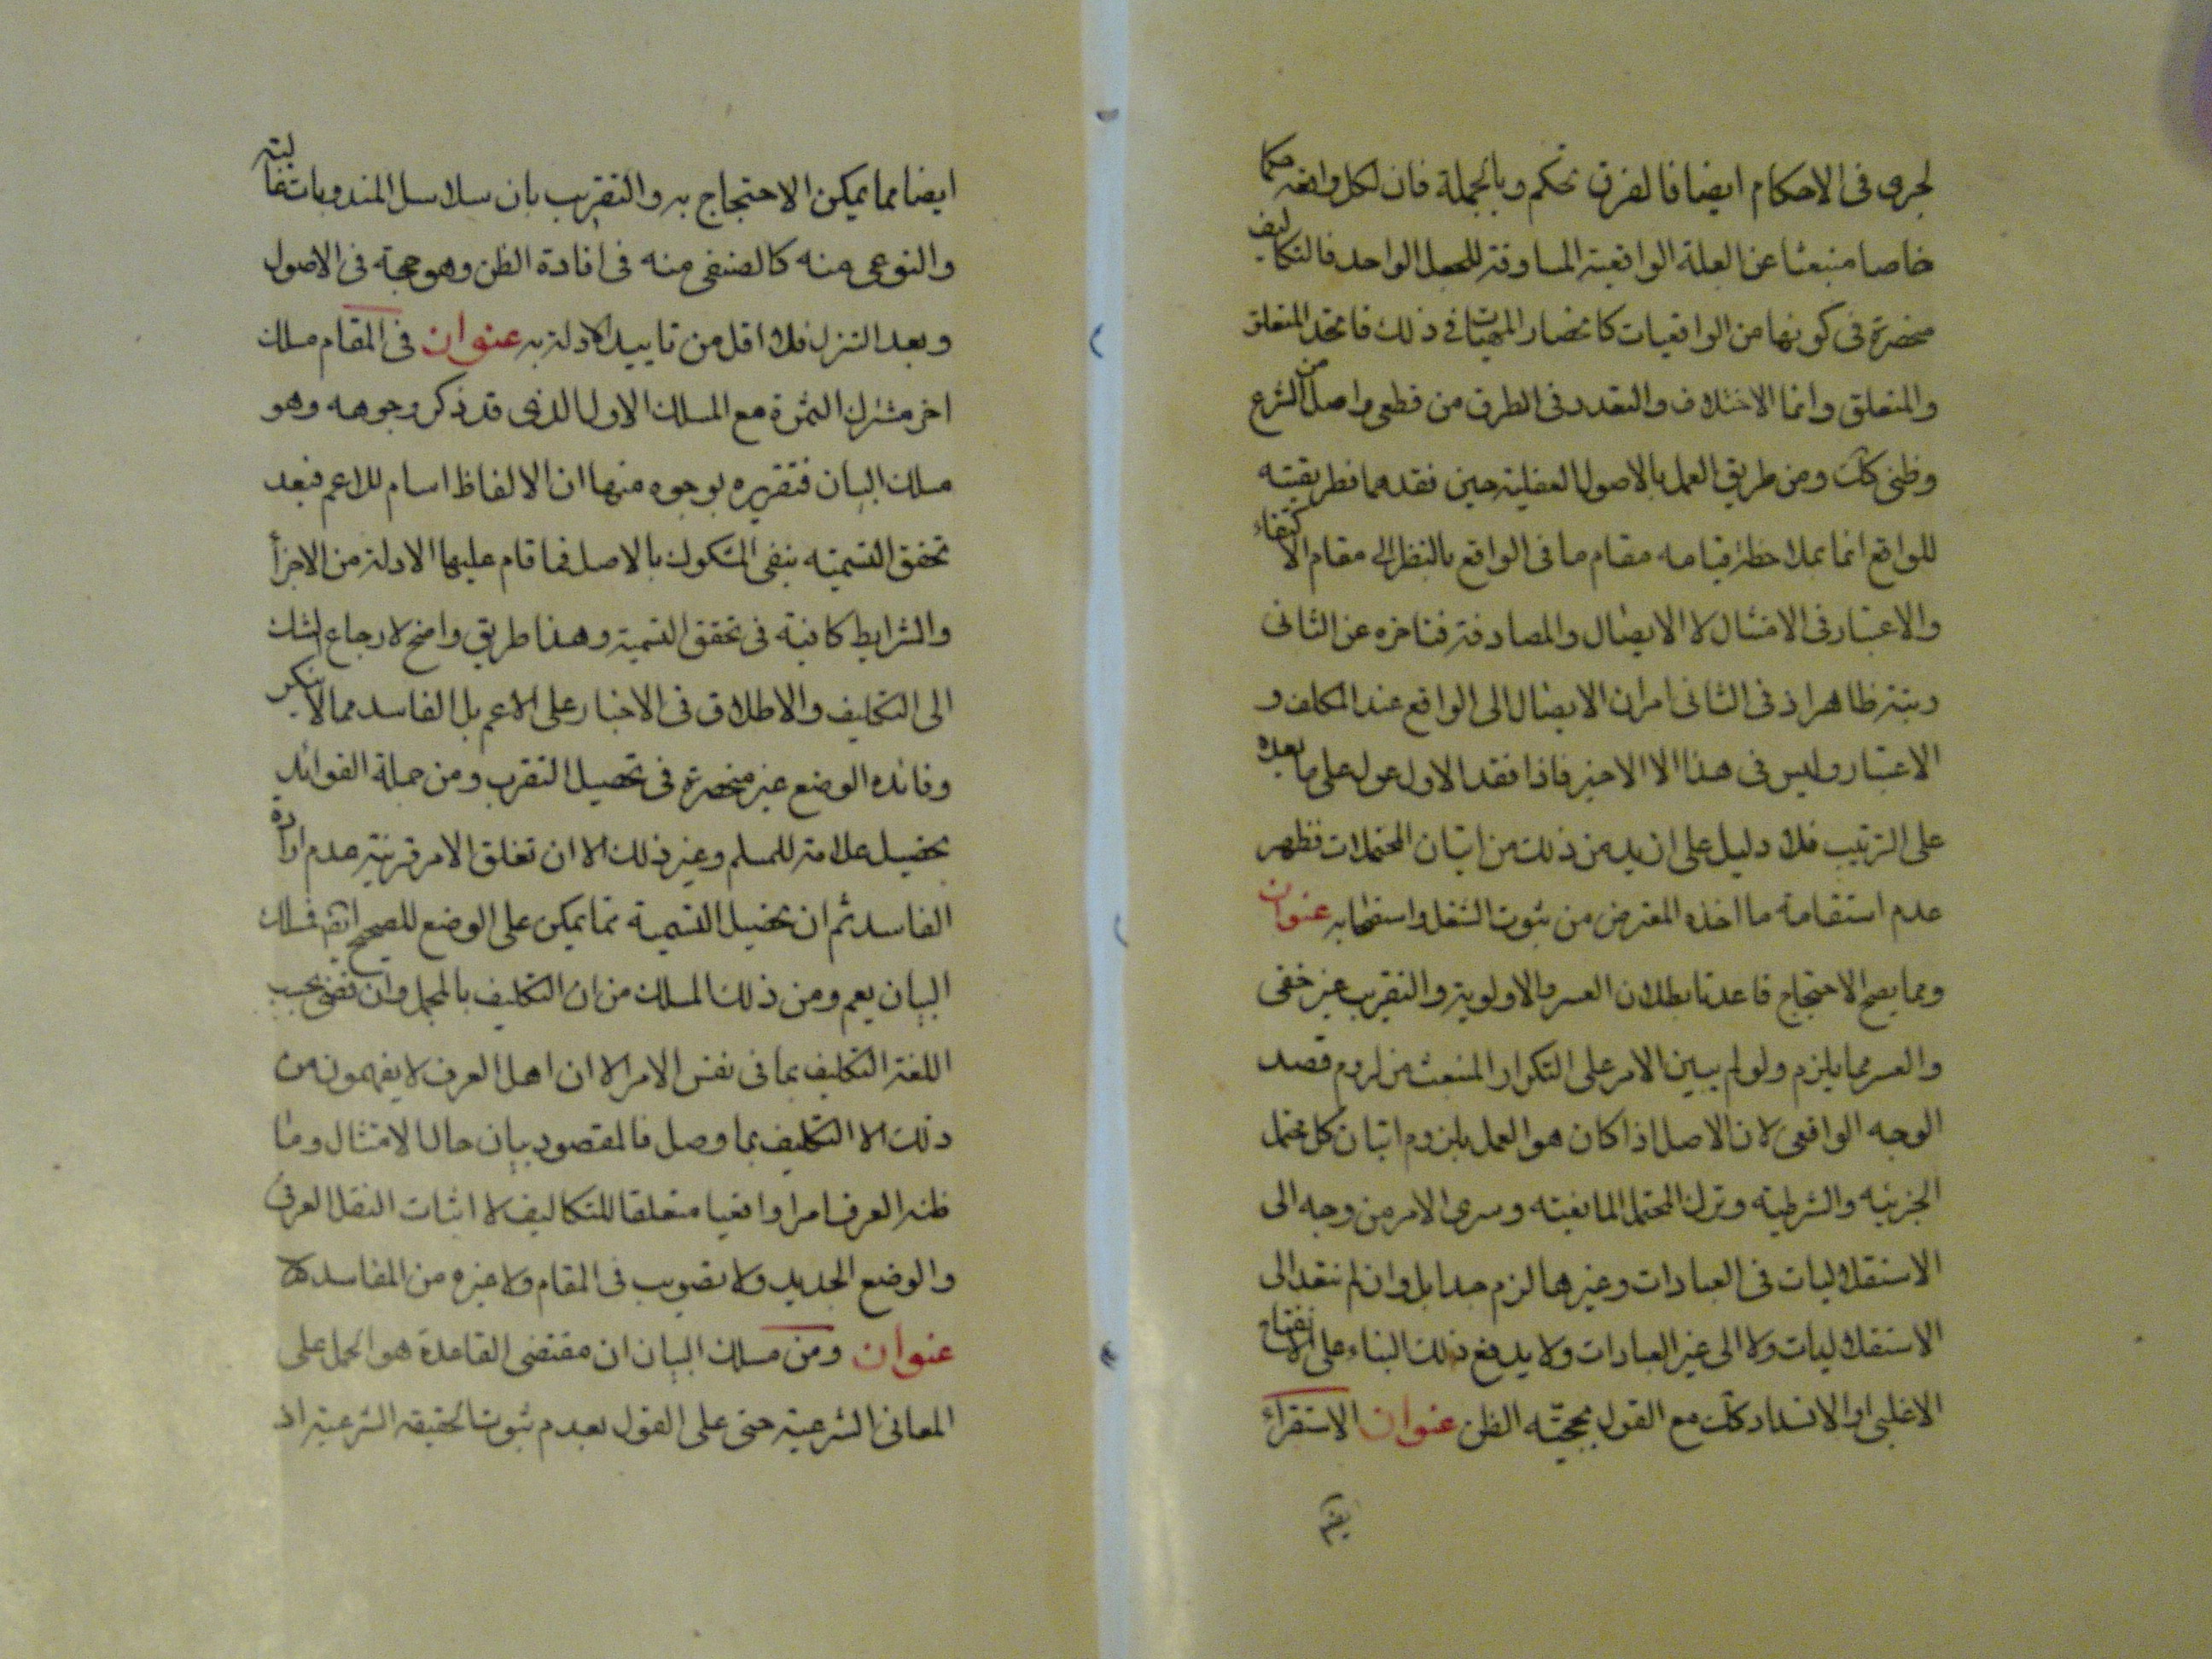 لجرى فى الاحكام ايضا فالفرق تحكم وبالجملة فان لكل واقعة حكما
خاصا منبعثا عن العلة الواقعية المساوقة للجعل الواحد فالتكاليف
منحصرة فى كونها من الواقعيات كانحصار المهيات فى ذلك فاتحد المتعلق
والمتعلق وانما الاختلاف والتعدد فى الطرق من قطعى واصل من الشرع
وظنى كك ومن طريق العمل بالاصول العقلية حين فقدهما فطريقيته
للواقع انما بملاحظة قيامه مقام ما فى الواقع بالنظر الى مقام الاكتفاء
والاعتبار فى الامتثال لا الايصال والمصادفة فتاخره عن الثانى
رتبة ظاهر اذ فى الثانى امران الايصال الى الواقع عند المكلف و
الاعتبار وليس فى هذا الا الاخير فاذا فقد الاول عول على ما بعده
على الترتيب فلا دليل على ازيد من ذلك من اتيان المحتملات فظهر
عدم استقامة ما اخذه المعترض من ثبوت الشغل واستصحابه عنوان
ومما يصح الاحتجاج قاعدتا بطلان العسر والاولوية والتقريب غير خفى
والعسر مما يلزم ولو لم يبين الامر على التكرار المنبعث من لزوم قصد
الوجه الواقعى لان الاصل اذا كان هو العمل بلزوم اتيان كل محتمل
الجزئية والشرطية وترك المحتمل المانعية وسرى الامر من وجه الى
الاستقلاليات فى العبادات وغيرها لزم جدا بل وان لم نتعد الى
الاستقلاليات ولا الى غير العبادات ولا يدفع ذلك البناء على الانفتاح
الاغلبى او الانسداد كك مع القول بحجية الظن عنوان الاستقراء
ايضا مما يمكن الاحتجاج به والتقريب بان سلاسل المندوبات
والنوعى منه كالصنفى منه فى افادة الظن وهو حجة فى الاصول
وبعد التنزل فلا اقل من تاييد الادلة به عنوان فى المقام مسلك
اخر مشترك الثمرة مع المسلك الاول الذى قد ذكر وجوهه وهو
مسلك البيان فتقريره بوجوه منها ان الالفاظ اسام للاعم فبعد
تحقق التسمية ينفى المشكوك بالاصل فما قام عليها الادلة من الاجزأ
والشرايط كافية فى تحقق التسمية وهذا طريق واضح لارجاع الشك
الى التكليف والاطلاق فى الاخبار على الاعم بل الفاسد مما لا ينكر
وفائده الوضع غير منحصرة فى تحصيل التقرب ومن جملة الفوائد
تحصيل علامة للمسلم وغير ذلك الا ان تعلق الامر قرينة عدم ارادة
الفاسد ثم ان تحصيل التسمية مما يمكن على الوضع للصحيح ايضا فمسلك
البيان يعم ومن ذلك المسلك من ان التكليف بالمجمل وان اقتضى بحسب
اللغة التكليف بما فى نفس الامر الا ان اهل العرف لا يفهمون من
ذلك الا التكليف بما وصل فالمقصود بيان حال الامتثال وما
ظنه العرف امرا واقعيا متعلقا للتكاليف لا اثبات النقل العرفى
والوضع الجديد ولا تصويب فى المقام ولا غيره من المفاسد
عنوان ومن مسلك البيان ان مقتضى القاعدة هو الحمل على
المعانى الشرعية حتى على القول بعدم ثبوت الحقيقة الشرعية اذ